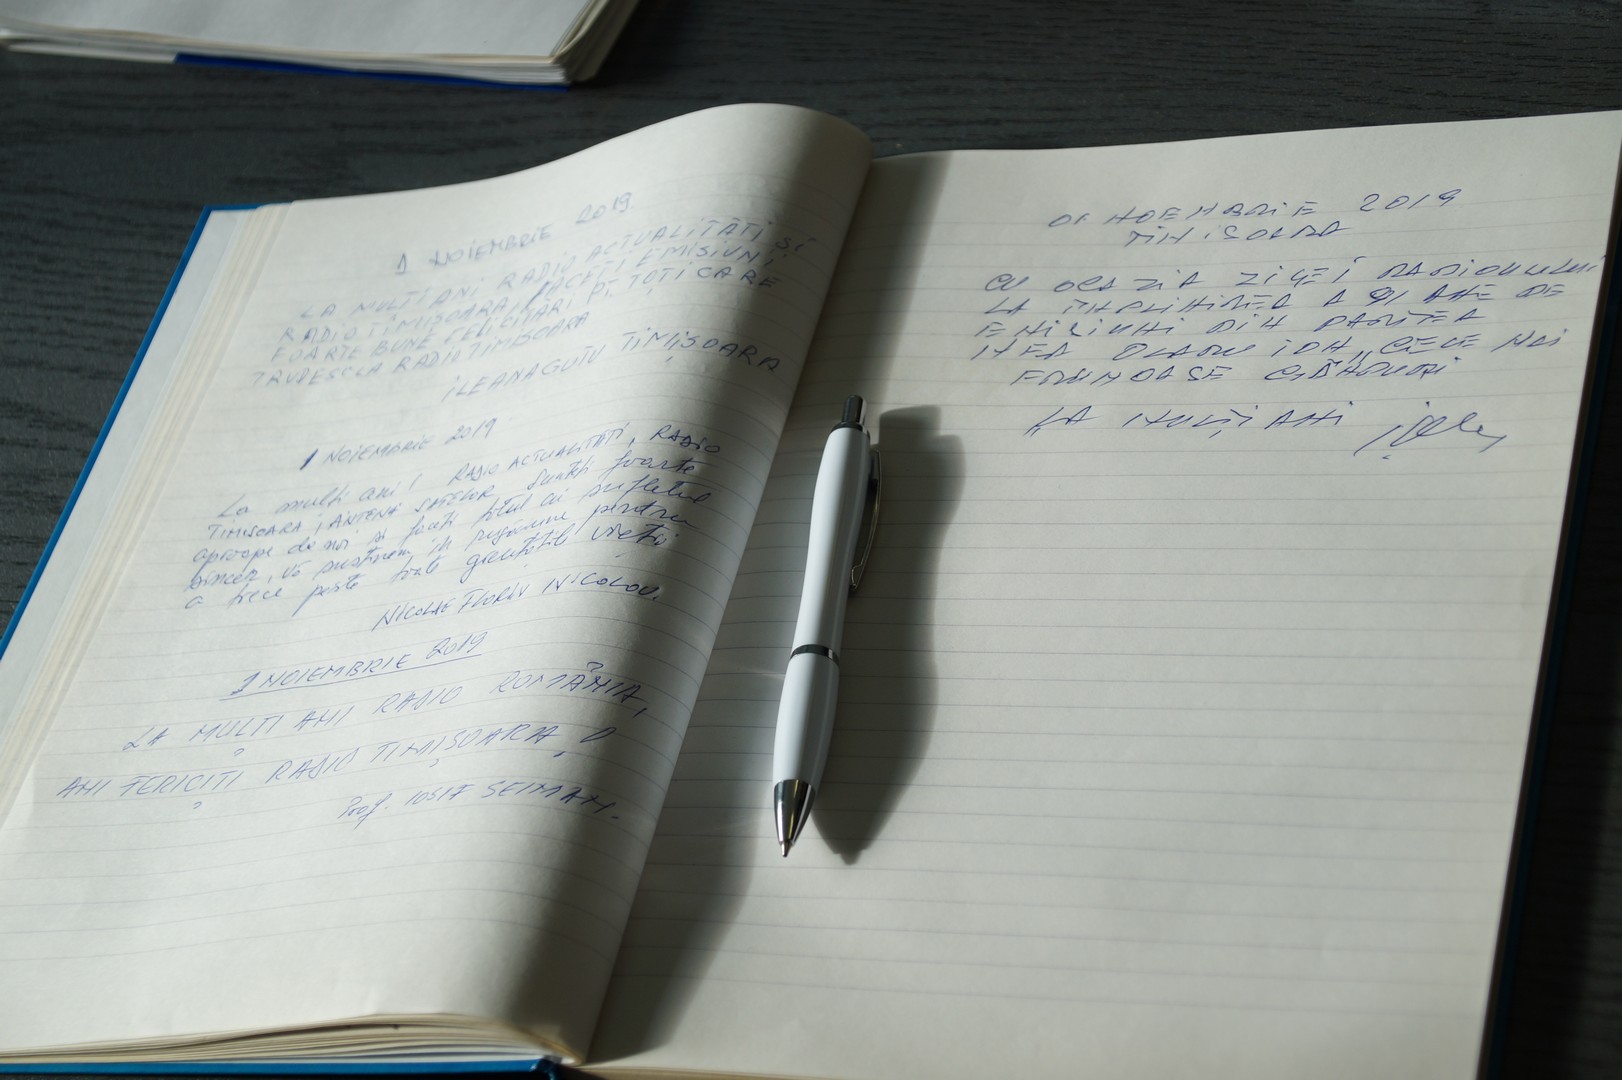 1 NOIEMBRIE 2019.
LA MULTI ANI RADIO ACTUALITĂȚI ȘI
RADIO TIMIȘOARA, FACEȚI EMISIUNI
FOARTE BUNE FELICITĂRI PT. TOȚI CARE
TRUDESC LA RADIO TIMISOARA
ILEANA GUTU TIMIȘOARA
1 NOIEMBRIE 2019.
La mulți ani! RADIO ACTUALITATI, RADIO
TIMISOARA, ANTENA SATELOR sunteți foarte
aproape de noi și faceți totul cu sufletul
sincer, vă susținem în pentru
a trece peste toate greutățile vieții.
NICOLAE FLORIN NICOLOV.
1 NOIEMBRIE 2019
LA MULȚI ANI RADIO ROMÂNIA,
ANI FERICIȚI RADIO TIMIȘOARA,
Prof. IOSIF SEIMAN.
01 NOEMBRIE 2019
TIMISOARA
CU OCAZIA ZILEI RADIOULUI
LA ÎMPLINIREA A 91 ANI DE
EMISIUNI DIN PARTEA
MEA IOAN, CELE MAI
FRUMOASE GÂNDURI
LA MULȚI ANI